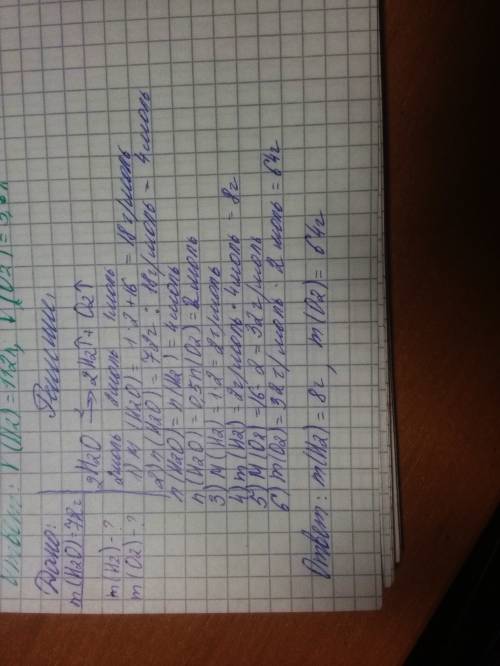 Ответ: V(H2) = 11,2л, V(O2) = 5,6л
Дано:
m(H2O)=72г
m(H2)-?
m(O2)-?
Решение:
2H2O → 2H2↑ + O2↑
2моль 2моль 1моль
1) M(H2O) = 1·2+16 = 18г/моль
2) n(H2O) = 72г : 18г/моль = 4моль
n(H2O) = n(H2) = 4моль
n(H2O) = 0,5n(O2) = 2моль
3) M(H2) = 1·2 = 2г/моль
4) m(H2) = 2г/моль · 4моль = 8г
5) M(O2) = 16·2 = 32г/моль
6) m(O2) = 32г/моль · 2моль = 64г
Ответ: m(H2) = 8г, m(O2) = 64г